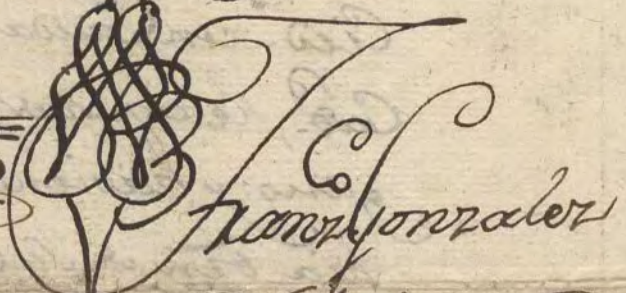 Franz Gonzalez